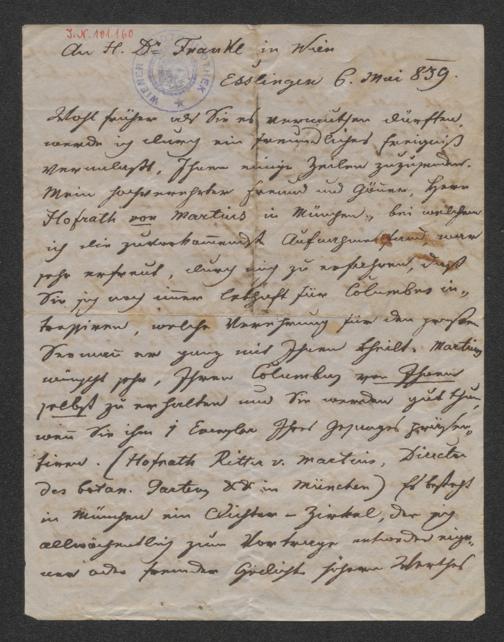 J.N. 101.160
An H. Dr Frankl in Wien
Esslingen 6. Mai 839.
Wohl früher als Sie es vermuthen dürften,
werde ich durch ein freundliches Ereigniß
veranlaßt, Ihnen einige Zeilen zuzusenden.
Mein hochverehrter Freund und Gönner, Herr
Hofrath von Martius in München, bei welchem
ich die zuvorkommendste Aufnahme fand, war
sehr erfreut, durch mich zu erfahren, daß
Sie sich noch immer lebhaft für Columbus in-
teressiren, welche Verehrung für den großen
Seemann er ganz mit Ihnen theilt. Martius
wünscht sehr, Ihren Columbus von Ihnen
selbst zu erhalten und Sie werden gut thun,
wenn Sie ihm 1 Exemplar Ihres Gesanges
(Hofrath Ritter v. Martius, Director
des botan. Gartens in München) Es besteht
in München ein Dichter-Zirkel, der sich
allwöchentlich zum Vortrage entweder eige-
ner oder fremder Gedichte höhern Werthes